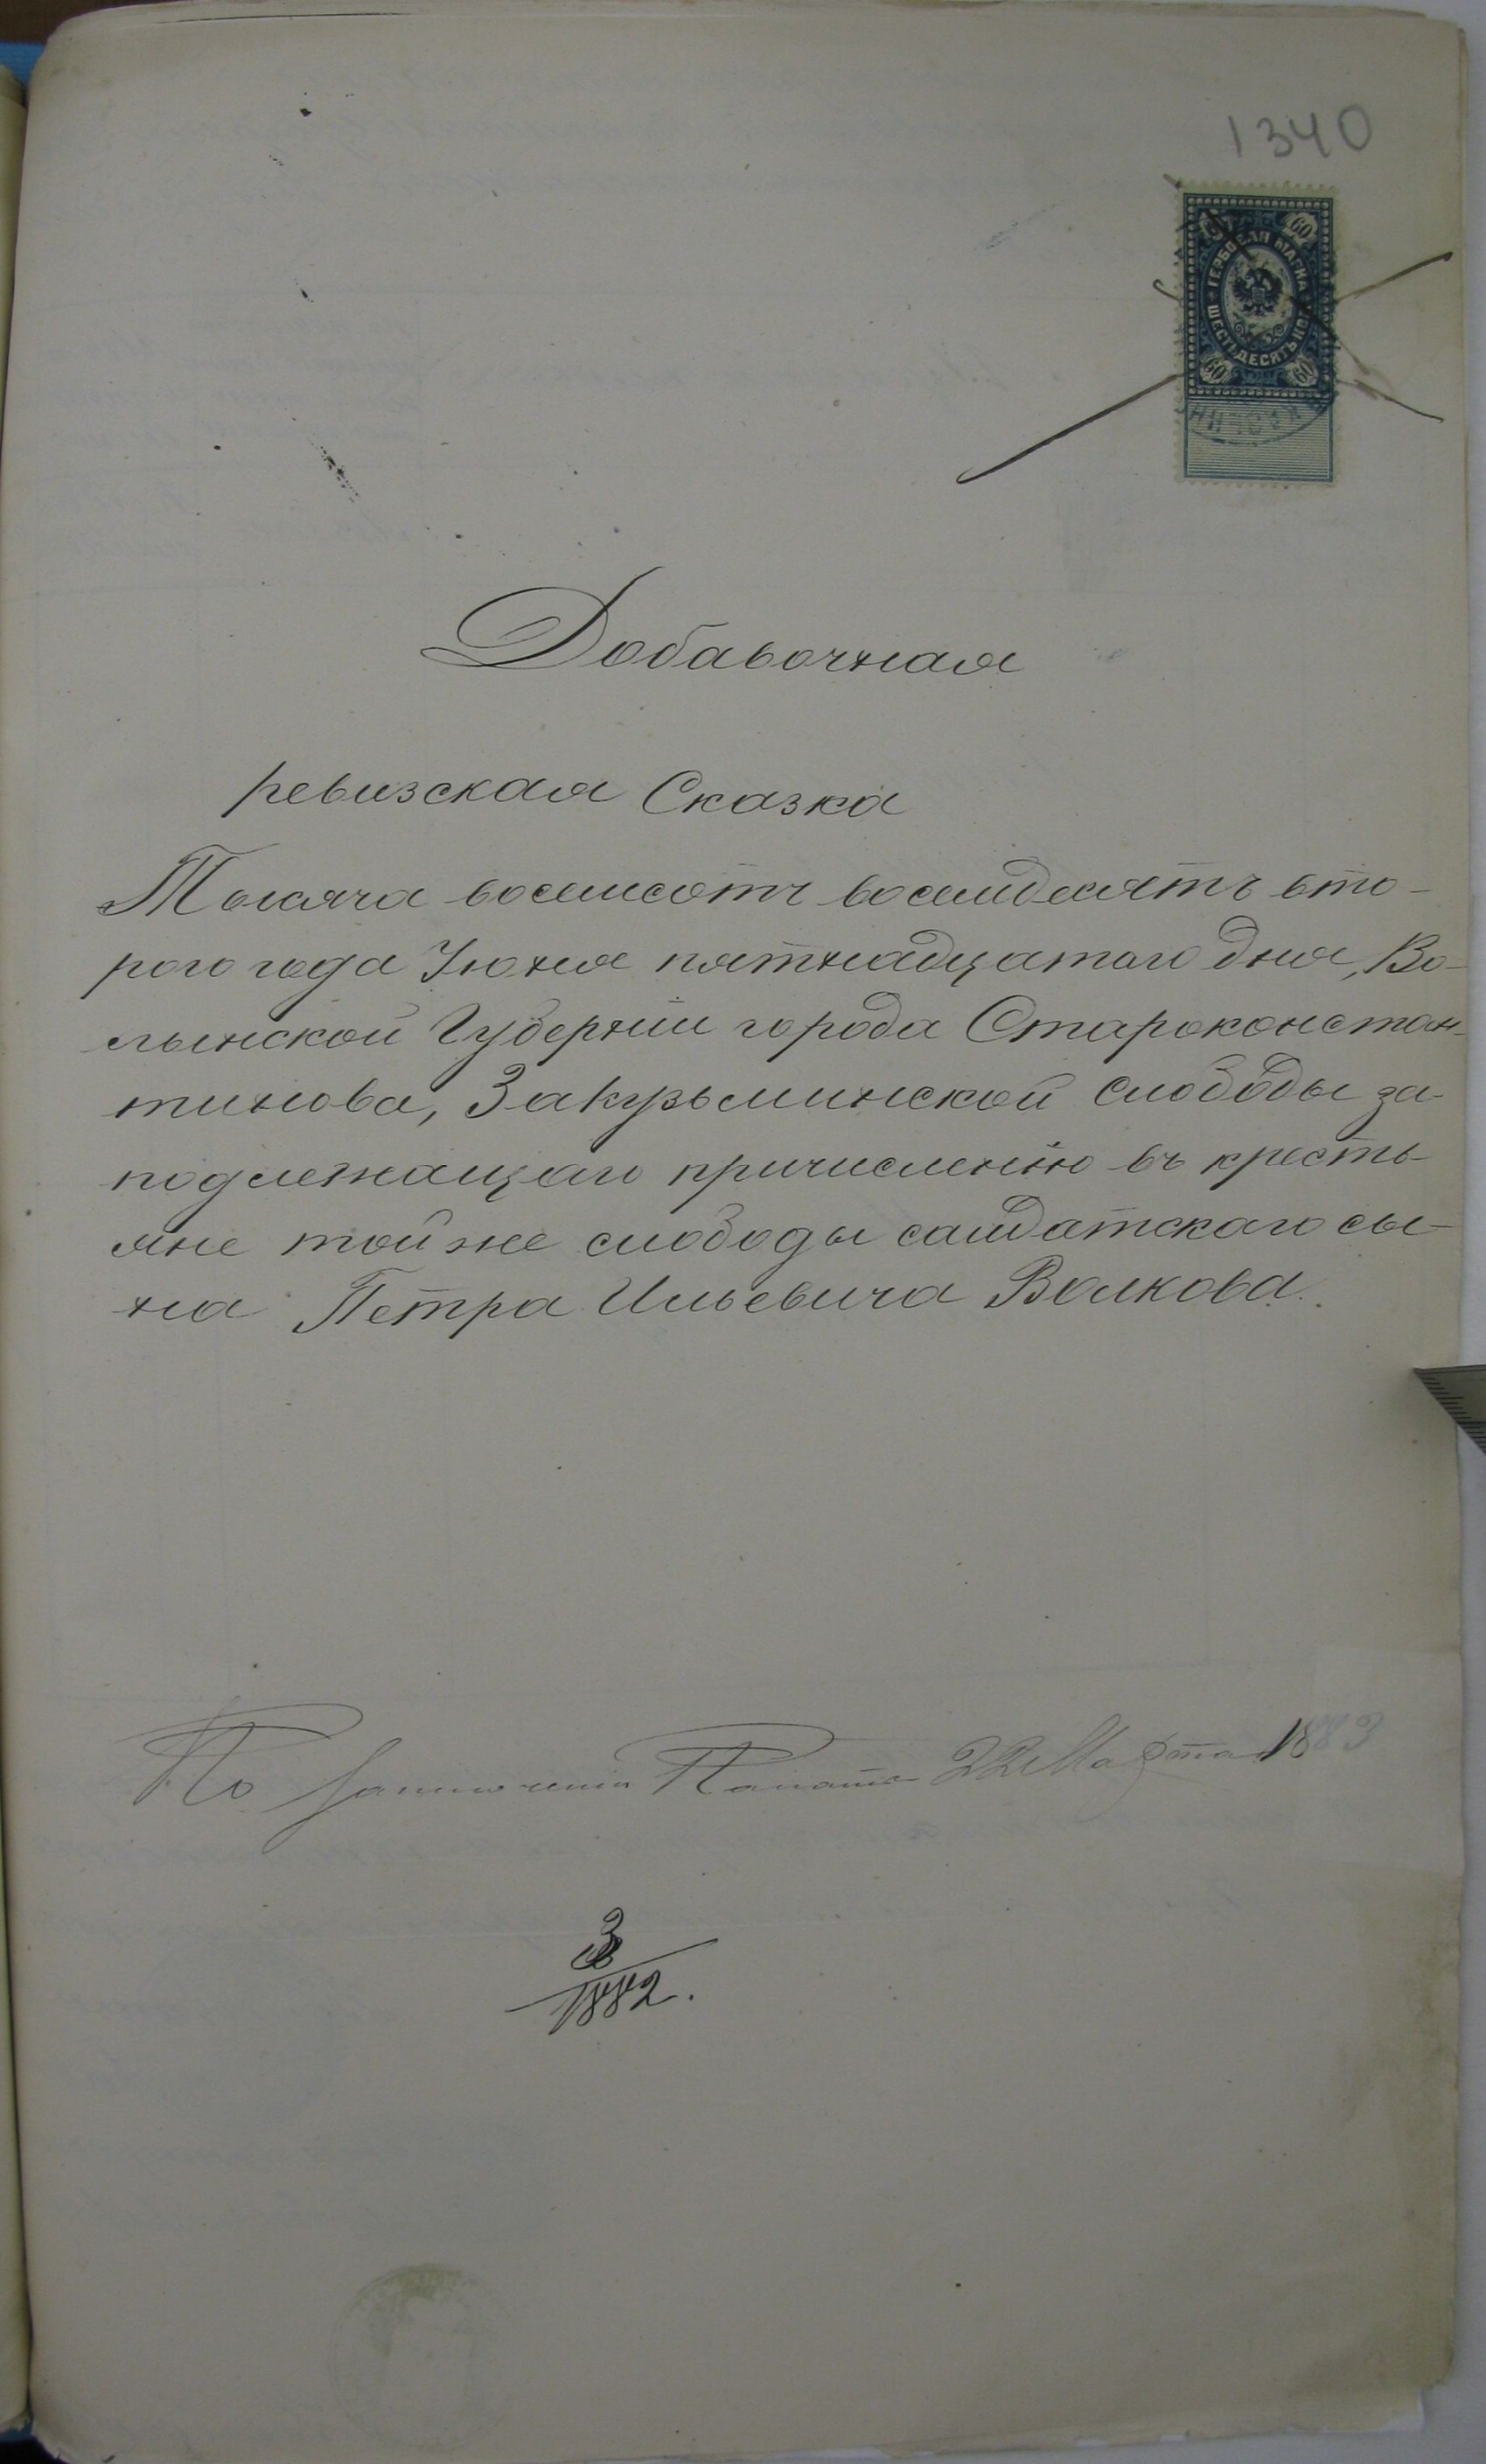 1340
60 60
ГЕРБОВАЯ МАРКА
ШЕСТЬДЕСЯТЪ КОП.
60 60
Добавочная
ревизская Сказка
Тысяча восемсотъ восемдесятъ вто-
рого года Июня пятнадцатаго дня, Во-
лынской Губерніи города Староконстан-
тинова, Закузьминской слободы за-
подлежащаго причисленію въ кресть-
яне той же слободы салдатскаго сы-
на Петра Ильевича Волкова.
По заключенію Палаты 22 Марта 1883
3
1882.